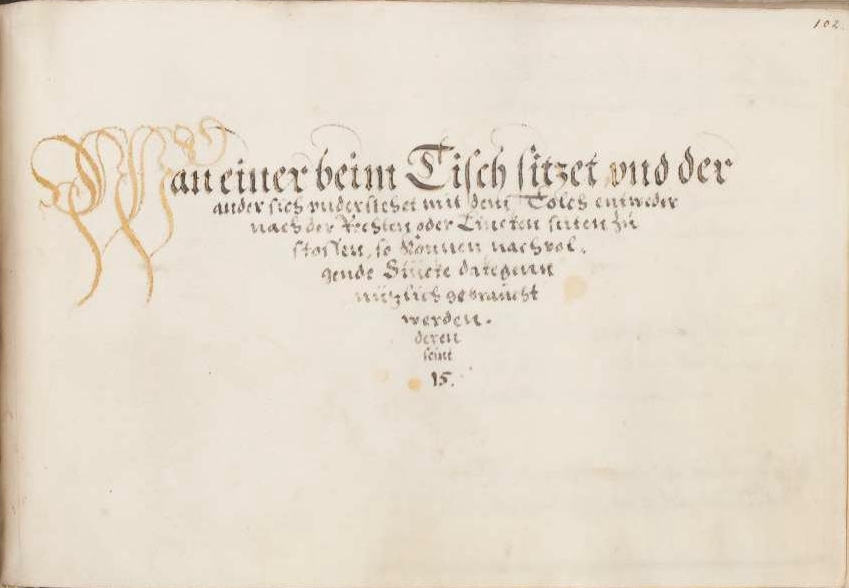 102.
Wan einer beim Tisch sitzet vnd der
ander sich vnderstehet mit dem Tolch entweder
nach der Rechten oder Lincken seiten zů
stossen, so können nachvol-
gende Stücke dargegen
nützlich gebraücht
werden.
deren
seint
15.